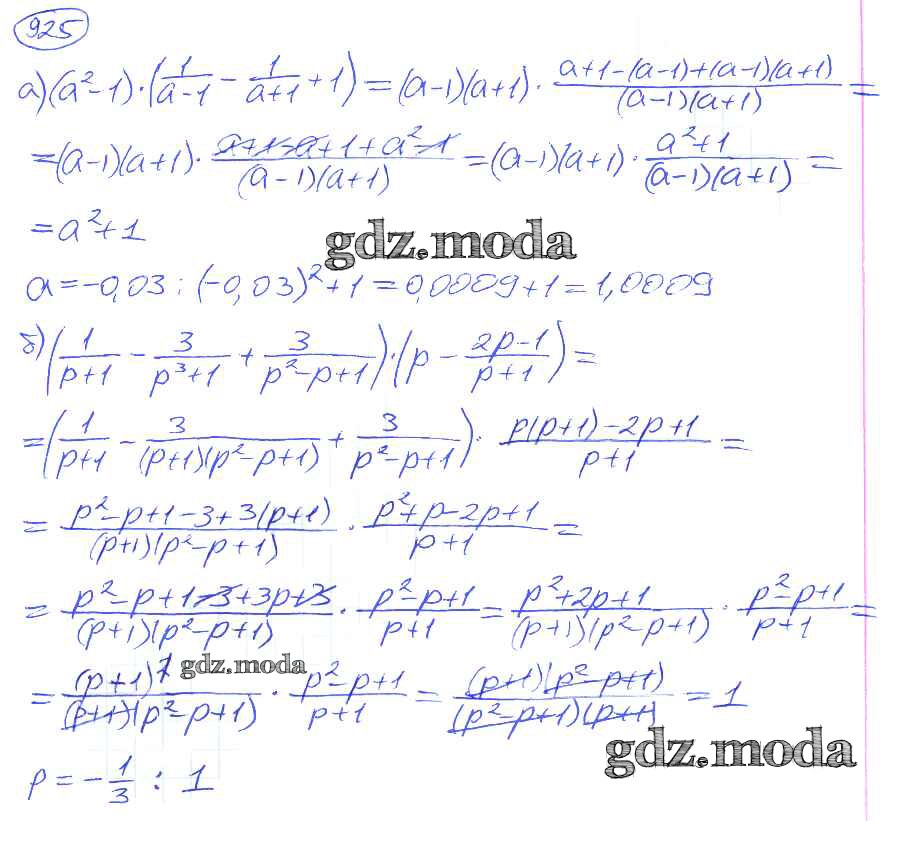 925
а) (a² - 1) · (1/(a-1) - 1/(a+1) + 1) = (a-1)(a+1) · (a+1-(a-1)+(a-1)(a+1))/((a-1)(a+1)) =
= (a-1)(a+1) · (a+1-a+1+a²-1)/((a-1)(a+1)) = (a-1)(a+1) · (a²+1)/((a-1)(a+1)) =
= a²+1
gdz.moda
a = -0,03 : (-0,03)²+1 = 0,0009+1 = 1,0009
б) (1/(p+1) - 3/(p³+1) + 3/(p²-p+1)) · (p - (2p-1)/(p+1)) =
= (1/(p+1) - 3/((p+1)(p²-p+1)) + 3/(p²-p+1)) · (p(p+1)-2p+1)/(p+1) =
= (p²-p+1-3+3(p+1))/((p+1)(p²-p+1)) · (p²+p-2p+1)/(p+1) =
= (p²-p+1-3+3p+3)/((p+1)(p²-p+1)) · (p²-p+1)/(p+1) = (p²+2p+1)/((p+1)(p²-p+1)) · (p²-p+1)/(p+1) =
gdz.moda
= (p+1)²/((p+1)(p²-p+1)) · (p²-p+1)/(p+1) = ((p+1)(p²-p+1))/((p²-p+1)(p+1)) = 1
gdz.moda
p = -1/3 : 1